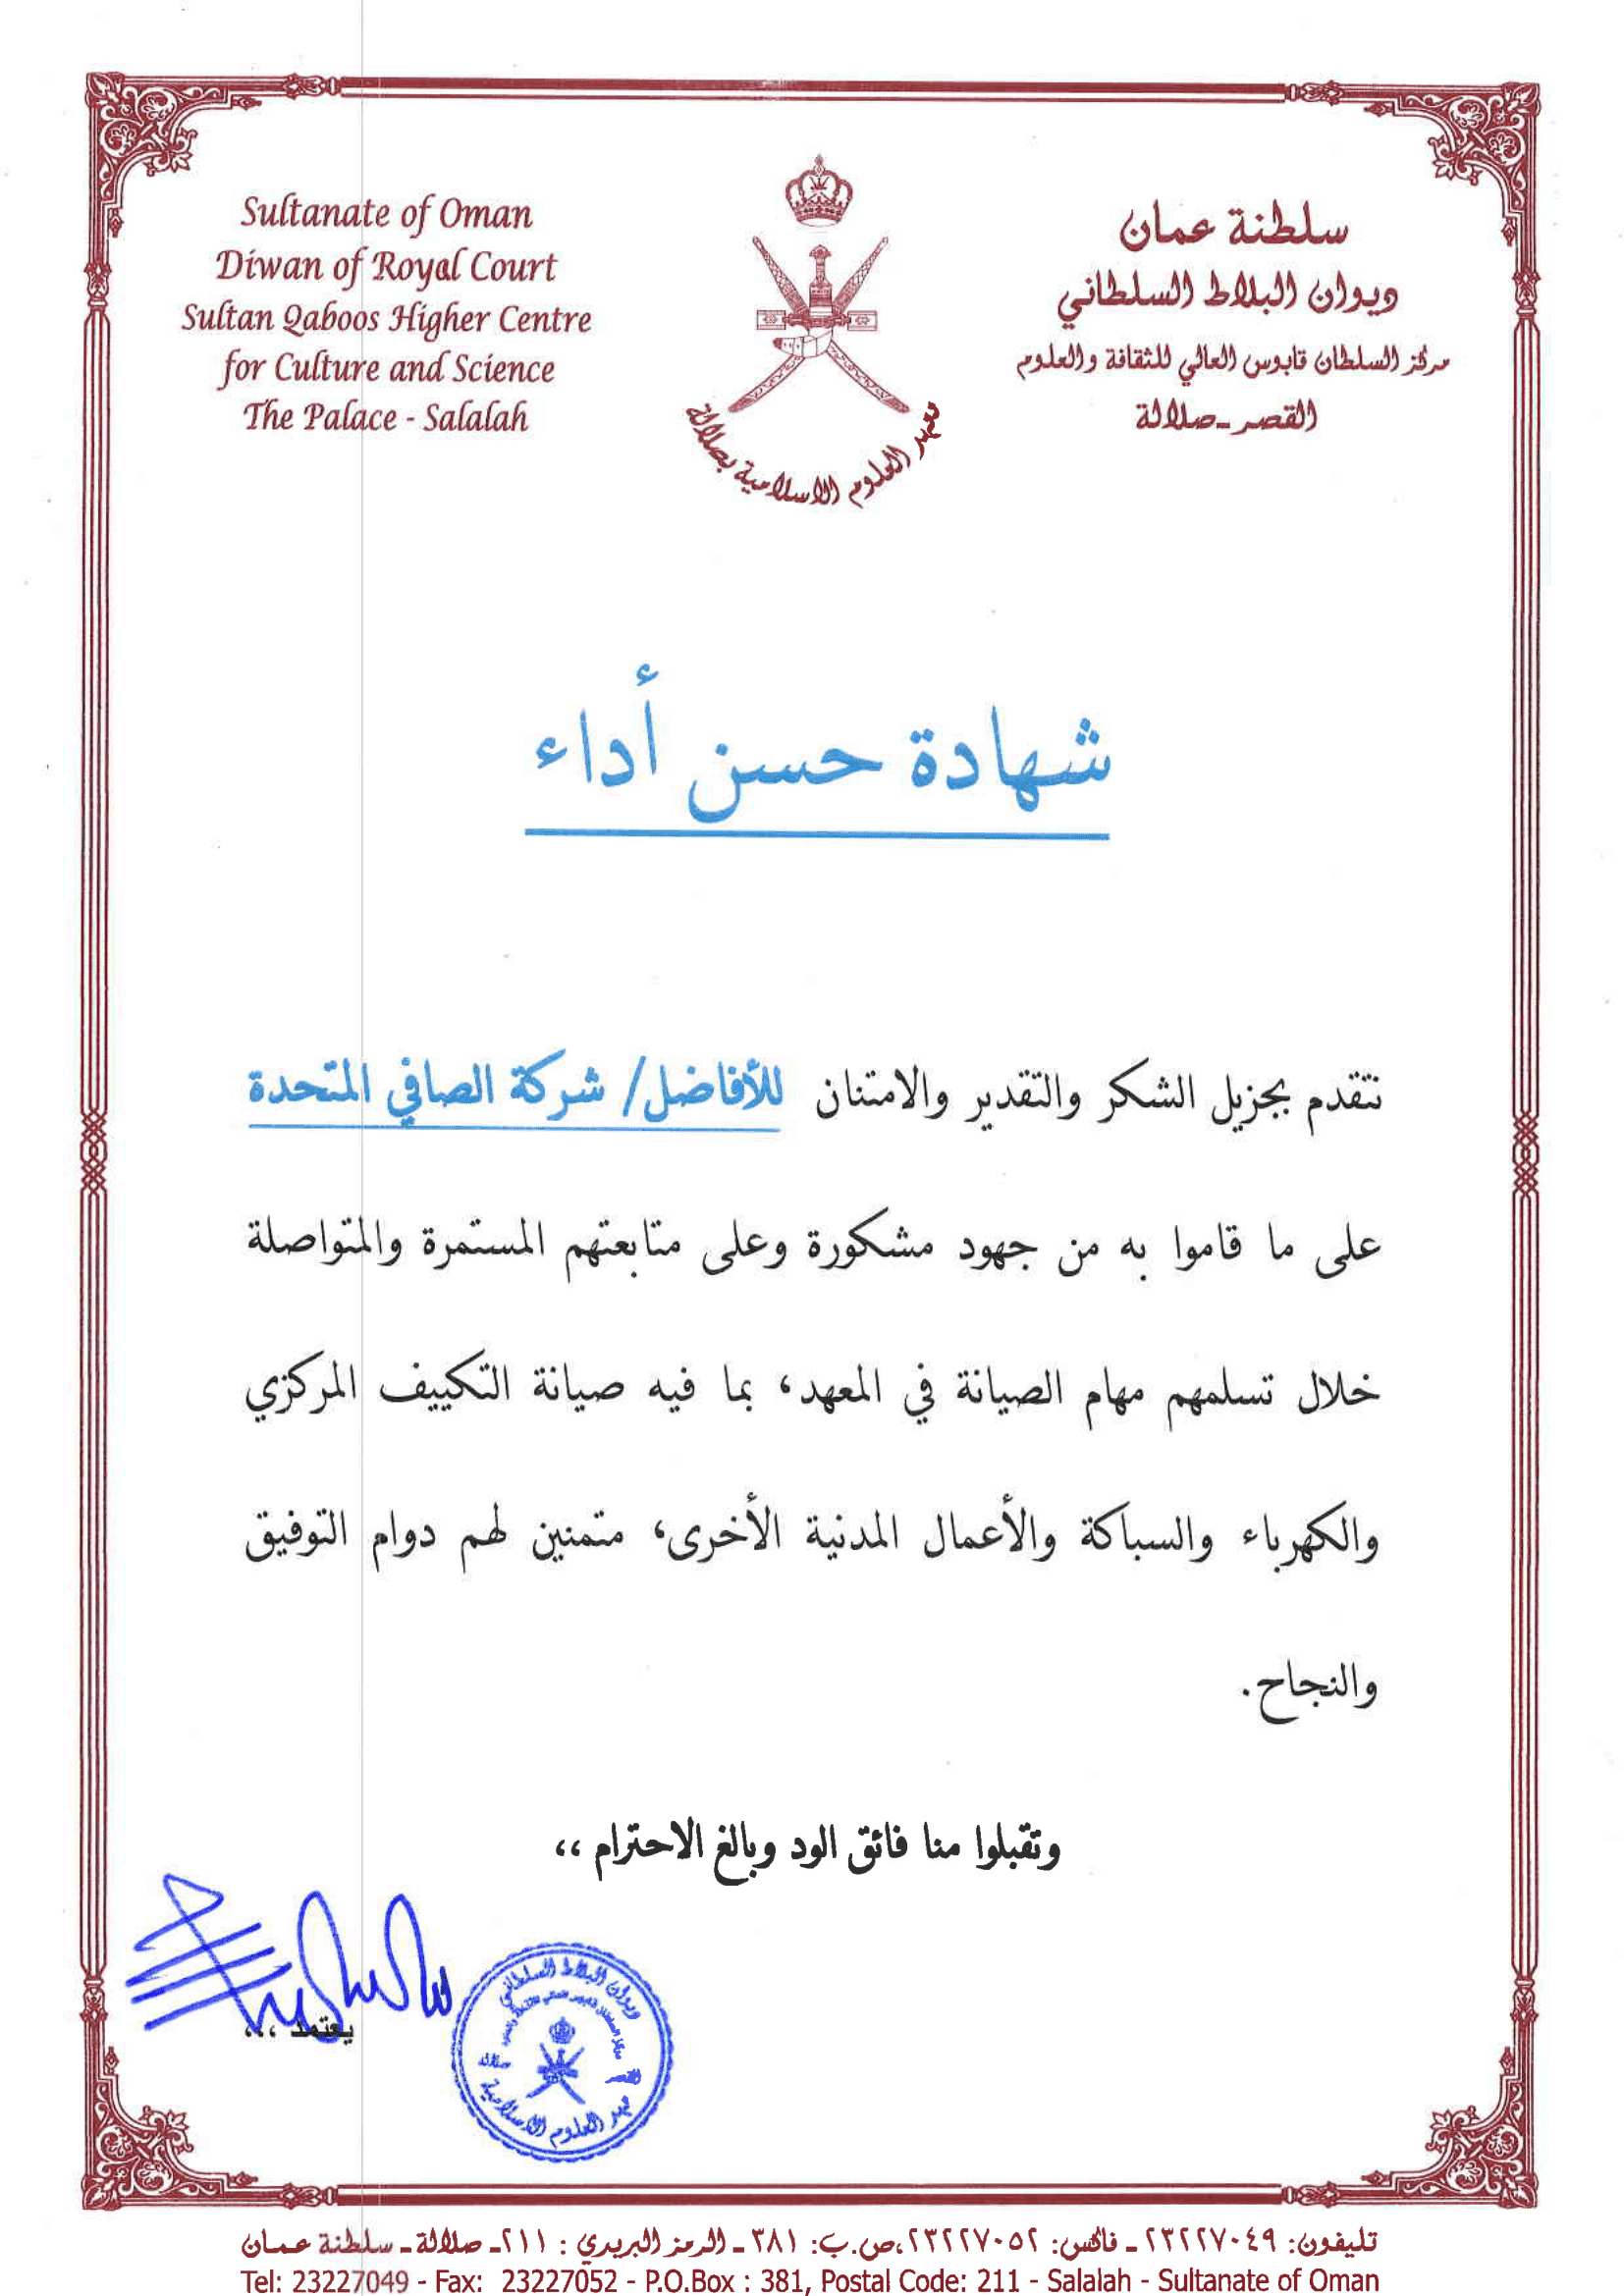 Sultanate of Oman
Diwan of Royal Court
Sultan Qaboos Higher Centre
for Culture and Science
The Palace - Salalah
سلطنة عمان
ديوان البلاط السلطاني
مركز السلطان قابوس العالي للثقافة والعلوم
القصر-صلالة
معهد العلوم الاسلامية بصلالة
شهادة حسن أداء
نتقدم بجزيل الشكر والتقدير والامتنان للأفاضل/ شركة الصافي المتحدة
على ما قاموا به من جهود مشكورة وعلى متابعتهم المستمرة والمتواصلة
خلال تسلمهم مهام الصيانة في المعهد، بما فيه صيانة التكييف المركزي
والكهرباء والسباكة والأعمال المدنية الأخرى، متمنين لهم دوام التوفيق
والنجاح.
وتقبلوا منا فائق الود وبالغ الاحترام ،،
يعتمد ،،،
ديوان البلاط السلطاني
مركز السلطان قابوس العالي للثقافة والعلوم
القصر صلالة
معهد العلوم الاسلامية
تليفون: ٢٣٢٢٧٠٤٩ - فاكس: ٢٣٢٢٧٠٥٢،ص.ب: ٣٨١ - الرمز البريدي : ٢١١- صلالة - سلطنة عمان
Tel: 23227049 - Fax: 23227052 - P.O.Box : 381, Postal Code: 211 - Salalah - Sultanate of Oman